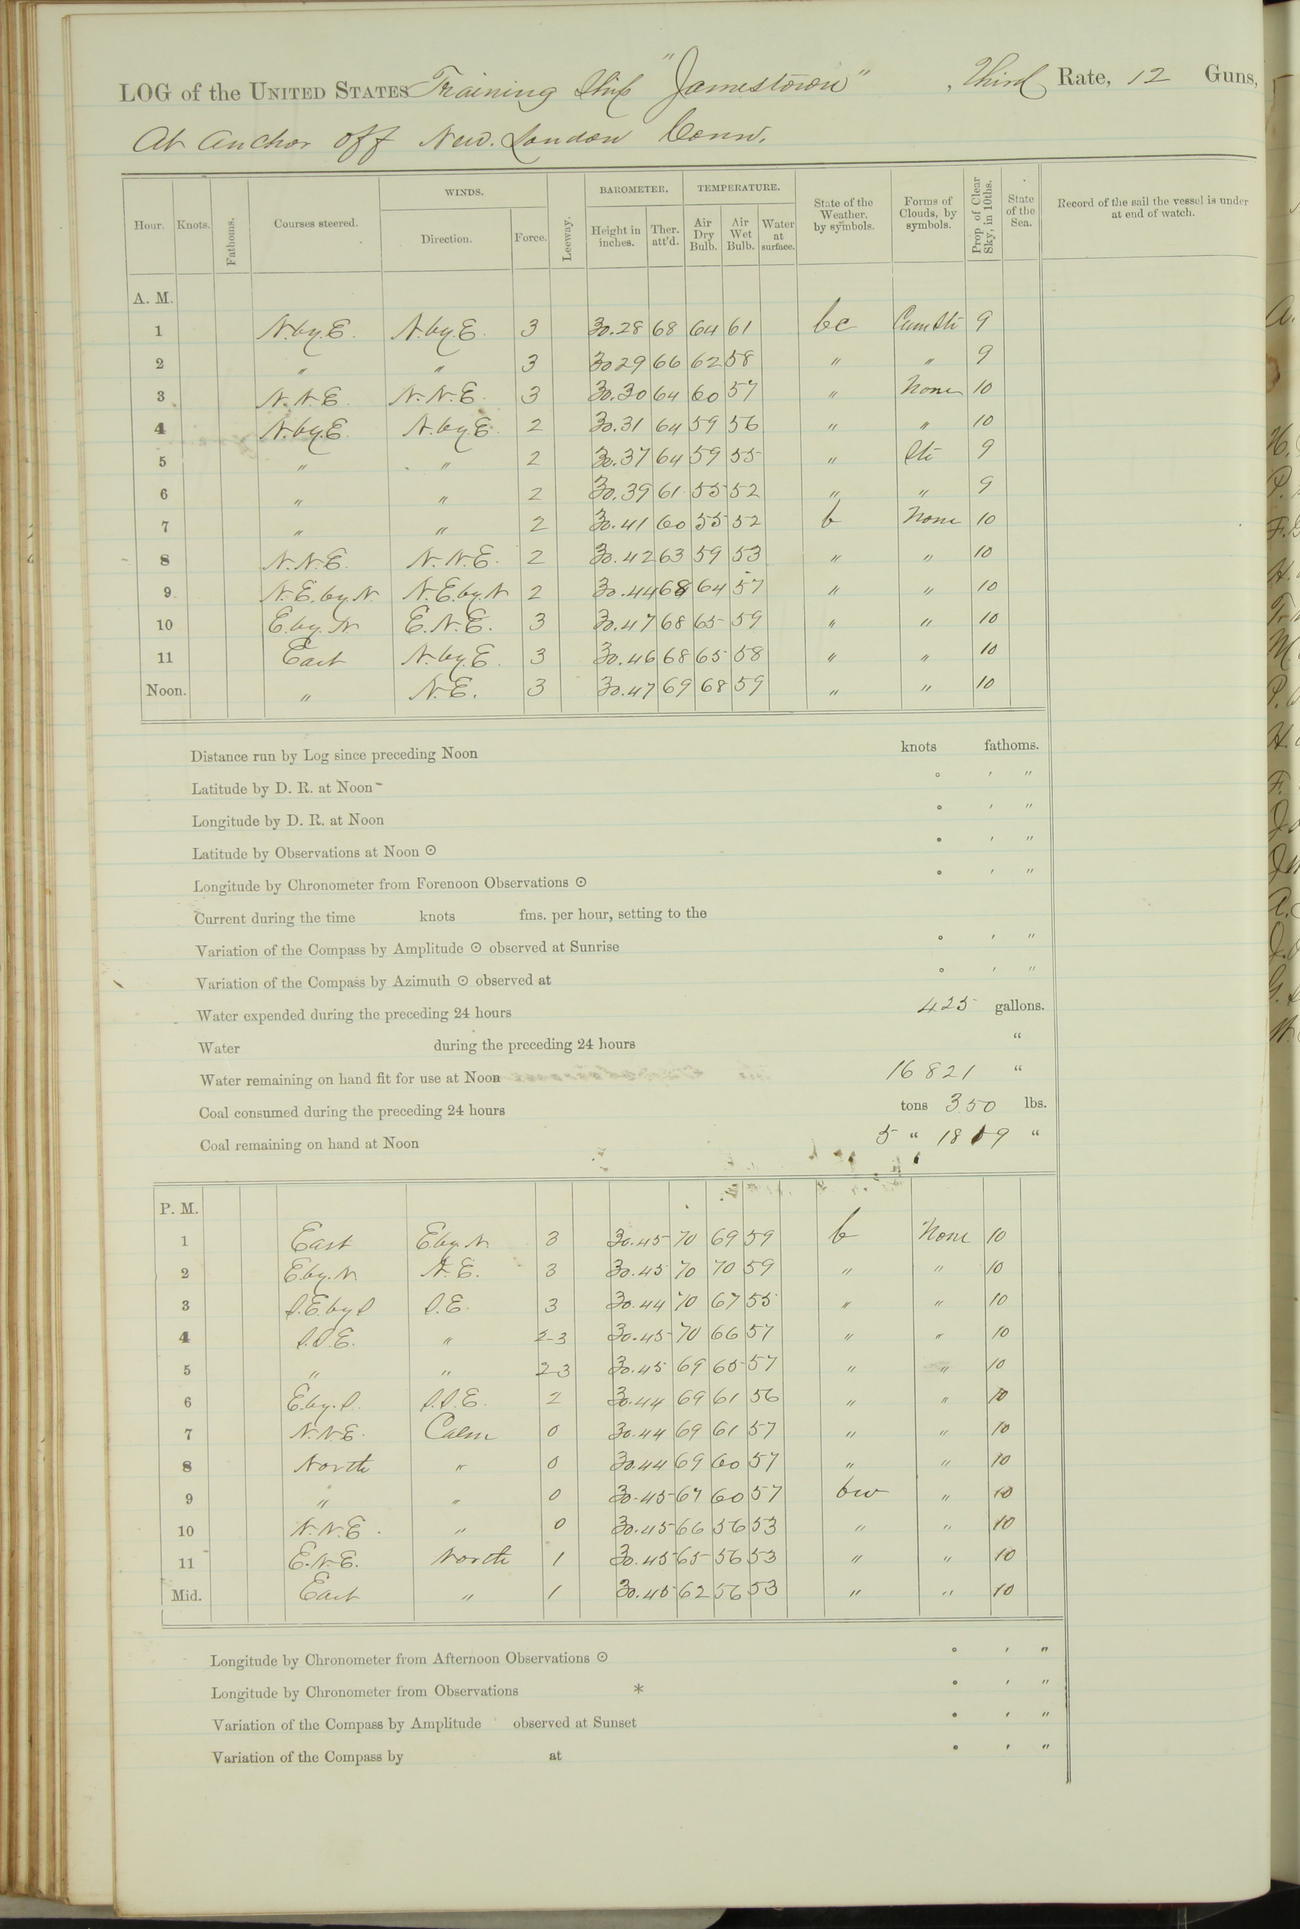 LOG of the UNITED STATES Training Ship "Jamestown", Third Rate, 12 Guns,
At anchor off New London Conn.
Hour. Knots. Fathoms. Courses steered. WINDS. Direction. Force. Leeway. BAROMETER. Height in inches. Ther. att'd. TEMPERATURE. Air Dry Bulb. Air Wet Bulb. Water at surface. State of the Weather, by symbols. Forms of Clouds, by symbols. Prop. of Clear Sky, in 10ths. State of the Sea. Record of the sail the vessel is under at end of watch.
A. M.
1 N.by.E. N.by.E. 3 30.28 68 64 61 bc Cum Str 9
2 " " 3 30 29 66 62 58 " " 9
3 N.N.E. N.N.E. 3 30.30 64 60 57 " None 10
4 N.by.E. N.by.E. 2 30.31 64 59 56 " " 10
5 " " 2 30.37 64 59 55 " Str 9
6 " " 2 30.39 61 55 52 " " 9
7 " " 2 30.41 60 55 52 b None 10
8 N.N.E. N.N.E. 2 30.42 63 59 53 " " 10
9 N.E.by.N N.E.by.N 2 30.44 68 64 57 " " 10
10 E.by.N E.N.E. 3 30.47 68 65 59 " " 10
11 East N.by.E. 3 30.46 68 65 58 " " 10
Noon. " N.E. 3 30.47 69 68 59 " " 10
Distance run by Log since preceding Noon knots fathoms.
Latitude by D. R. at Noon ° ' "
Longitude by D. R. at Noon ° ' "
Latitude by Observations at Noon ⊙ ° ' "
Longitude by Chronometer from Forenoon Observations ⊙ ° ' "
Current during the time knots fms. per hour, setting to the
Variation of the Compass by Amplitude ⊙ observed at Sunrise ° ' "
Variation of the Compass by Azimuth ⊙ observed at ° ' "
Water expended during the preceding 24 hours 425 gallons.
Water during the preceding 24 hours "
Water remaining on hand fit for use at Noon 16821 "
Coal consumed during the preceding 24 hours tons 350 lbs.
Coal remaining on hand at Noon 5 " 1819 "
P. M.
1 East E.by.N 3 30.45 70 69 59 b None 10
2 E.by.N. N.E. 3 30.45 70 70 59 " " 10
3 S.E.by S S.E. 3 30.44 70 67 55 " " 10
4 S.S.E. " 2-3 30.45 70 66 57 " " 10
5 " " 2-3 30.45 69 65 57 " " 10
6 E.by.S. S.S.E. 2 30.44 69 61 56 " " 10
7 N.N.E. Calm 0 30.44 69 61 57 " " 10
8 North " 0 30.44 69 60 57 " " 10
9 " " 0 30.45 67 60 57 bw " 10
10 N.N.E. " 0 30.45 66 56 53 " " 10
11 E.N.E. North 1 30.45 65 56 53 " " 10
Mid. East " 1 30.45 62 56 53 " " 10
Longitude by Chronometer from Afternoon Observations ⊙ ° ' "
Longitude by Chronometer from Observations * ° ' "
Variation of the Compass by Amplitude observed at Sunset ° ' "
Variation of the Compass by at ° ' "